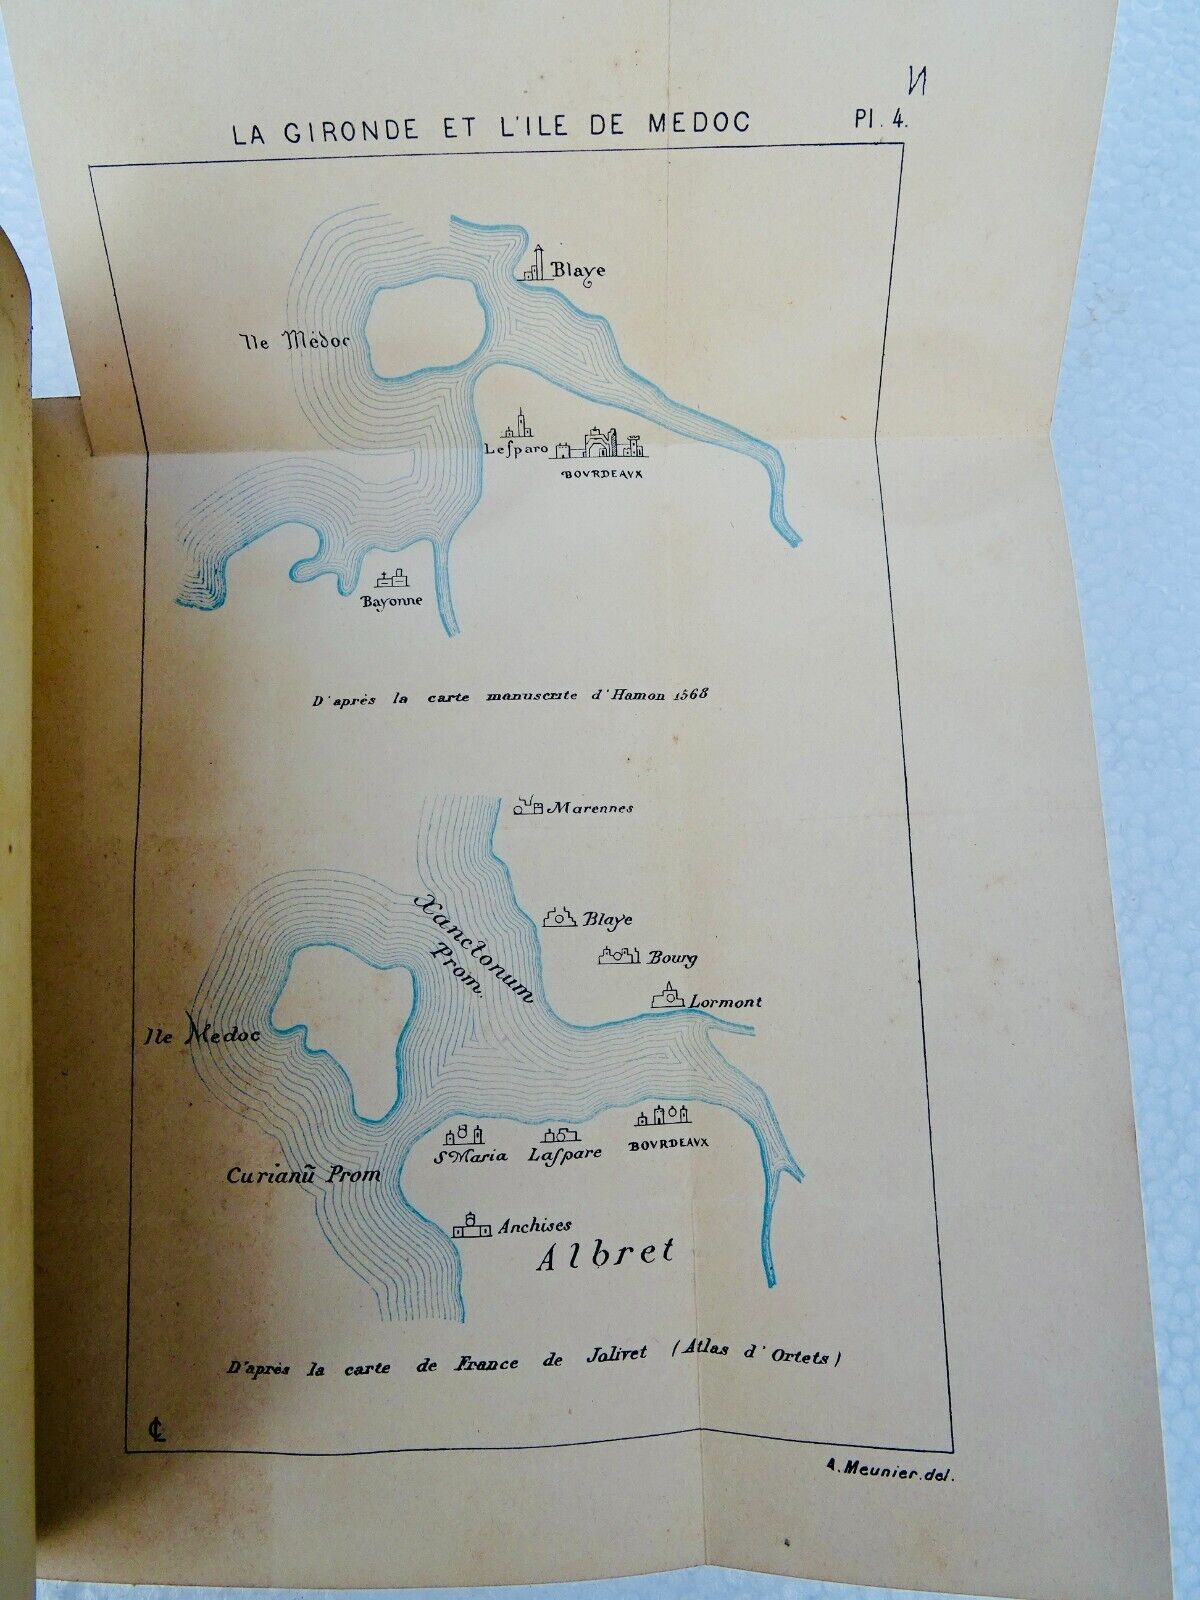 LA GIRONDE ET L'ILE DE MEDOC
Pl. 4.
Blaye
Ile Médoc
Lesparo
BOVRDEAVX
Bayonne
D'après la carte manuscrite d'Hamon 1568
Marennes
Xanctonum
Prom.
Blaye
Bourg
Lormont
Ile Medoc
S Maria
Laſpare
BOVRDEAVX
Curianũ Prom
Anchises
Albret
D'après la carte de France de Jolivet (Atlas d'Ortets)
A. Meunier. del.